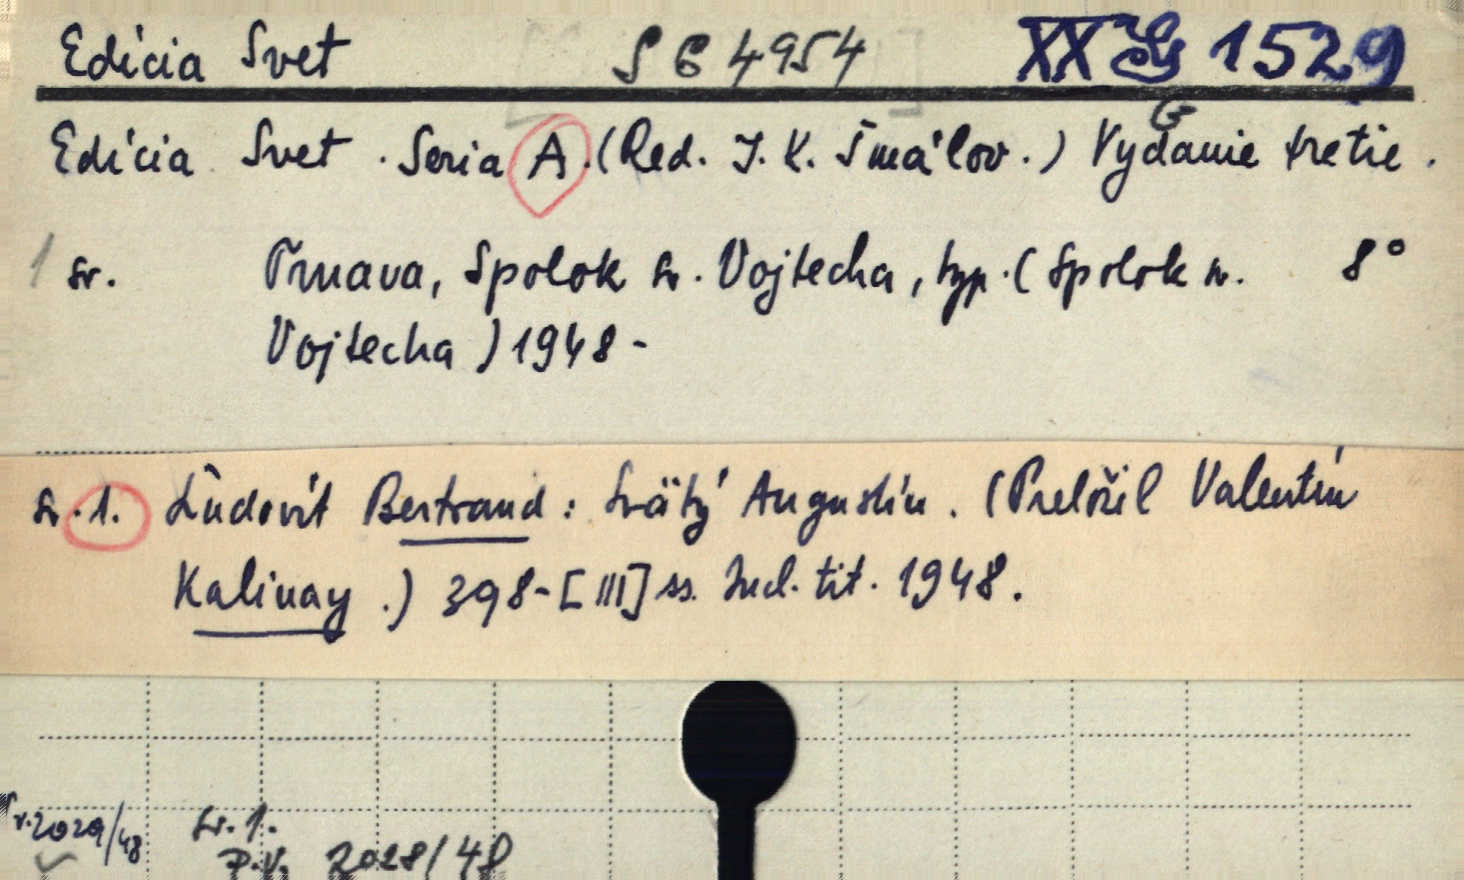 Edícia Svet SG 4954 XX G 1529
G
Edícia Svet. Seria A. (Red. J. K. Šmálov.) Vydanie tretie.
1 sv. Trnava, Spolok sv. Vojtecha, typ. (Spolok sv. 8°
Vojtecha) 1948-
Sv. 1. Ľudovít Bertrand: Svätý Augustín. (Preložil Valentín
Kalinay.) 398-[III] ss. Incl. tit. 1948.
2029/48 Sv. 1.
P.V. 2028/48